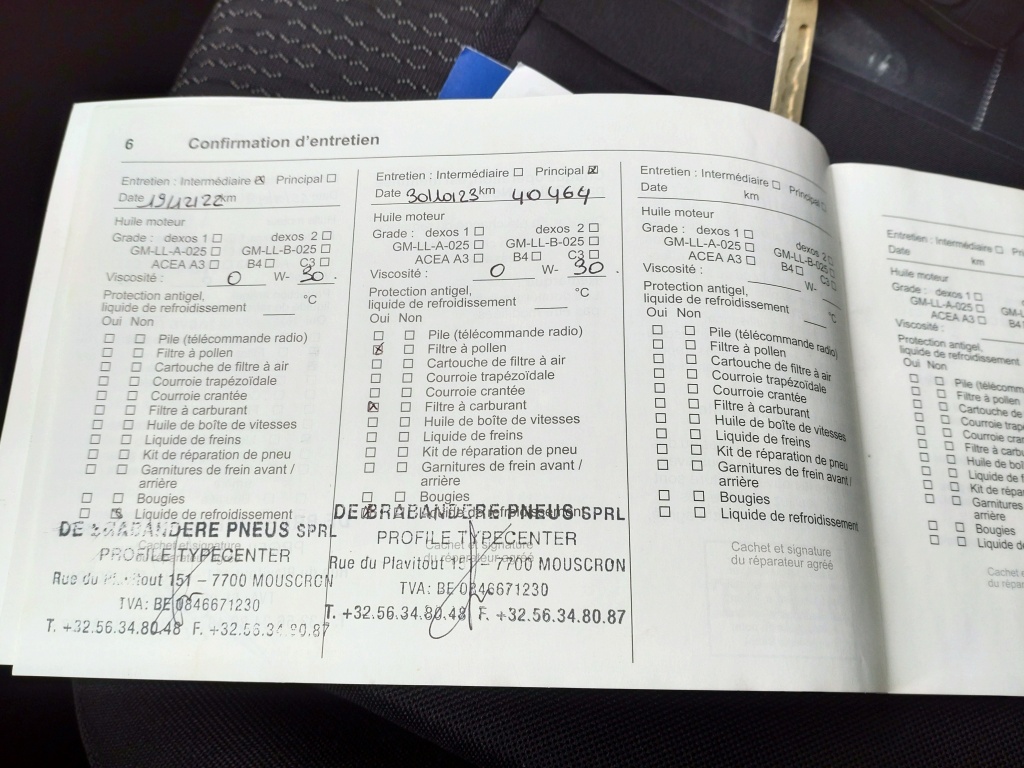 6 Confirmation d'entretien
Entretien : Intermédiaire ☒ Principal ☐
Date 19/12/22 km
Huile moteur
Grade : dexos 1 ☐ dexos 2 ☐
GM-LL-A-025 ☐ GM-LL-B-025 ☐
ACEA A3 ☐ B4 ☐ C3 ☐
Viscosité : 0 W- 30
Protection antigel,
liquide de refroidissement °C
Oui Non
☐ ☐ Pile (télécommande radio)
☐ ☐ Filtre à pollen
☐ ☐ Cartouche de filtre à air
☐ ☐ Courroie trapézoïdale
☐ ☐ Courroie crantée
☐ ☐ Filtre à carburant
☐ ☐ Huile de boîte de vitesses
☐ ☐ Liquide de freins
☐ ☐ Kit de réparation de pneu
☐ ☐ Garnitures de frein avant /
arrière
☐ ☐ Bougies
☐ ☒ Liquide de refroidissement
DE BRABANDERE PNEUS SPRL
Cachet et signature
PROFILE TYPECENTER
du réparateur agréé
Rue du Plavitout 151 – 7700 MOUSCRON
TVA: BE 0846671230
T. +32.56.34.80.48 F. +32.56.34.80.87
Entretien : Intermédiaire ☐ Principal ☒
Date 30/10/23 km 40464
Huile moteur
Grade : dexos 1 ☐ dexos 2 ☐
GM-LL-A-025 ☐ GM-LL-B-025 ☐
ACEA A3 ☐ B4 ☐ C3 ☐
Viscosité : 0 W- 30 .
Protection antigel,
liquide de refroidissement °C
Oui Non
☐ ☐ Pile (télécommande radio)
☒ ☐ Filtre à pollen
☐ ☐ Cartouche de filtre à air
☐ ☐ Courroie trapézoïdale
☐ ☐ Courroie crantée
☒ ☐ Filtre à carburant
☐ ☐ Huile de boîte de vitesses
☐ ☐ Liquide de freins
☐ ☐ Kit de réparation de pneu
☐ ☐ Garnitures de frein avant /
arrière
☐ ☐ Bougies
Liquide de refroidissement
DE BRABANDERE PNEUS SPRL
PROFILE TYPECENTER
Cachet et signature
du réparateur agréé
Rue du Plavitout 151 – 7700 MOUSCRON
TVA: BE 0846671230
T. +32.56.34.80.48 F. +32.56.34.80.87
Entretien : Intermédiaire ☐ Principal ☐
Date km
Huile moteur
Grade : dexos 1 ☐ dexos 2 ☐
GM-LL-A-025 ☐ GM-LL-B-025 ☐
ACEA A3 ☐ B4 ☐ C3 ☐
Viscosité : W-
Protection antigel,
liquide de refroidissement °C
Oui Non
☐ ☐ Pile (télécommande radio)
☐ ☐ Filtre à pollen
☐ ☐ Cartouche de filtre à air
☐ ☐ Courroie trapézoïdale
☐ ☐ Courroie crantée
☐ ☐ Filtre à carburant
☐ ☐ Huile de boîte de vitesses
☐ ☐ Liquide de freins
☐ ☐ Kit de réparation de pneu
☐ ☐ Garnitures de frein avant /
arrière
☐ ☐ Bougies
☐ ☐ Liquide de refroidissement
Cachet et signature
du réparateur agréé
Entretien : Intermédiaire ☐
Date km
Huile moteur
Grade : dexos 1 ☐
GM-LL-A-025 ☐ GM-L
ACEA A3 ☐ B4
Viscosité :
Protection antigel,
liquide de refroidissement
Oui Non
☐ ☐ Pile (télécomm
☐ ☐ Filtre à pollen
☐ ☐ Cartouche de
☐ ☐ Courroie trap
☐ ☐ Courroie cran
☐ ☐ Filtre à carbu
☐ ☐ Huile de boî
☐ ☐ Liquide de f
☐ ☐ Kit de répar
☐ ☐ Garnitures
arrière
☐ ☐ Bougies
☐ ☐ Liquide de
Cachet e
du répar